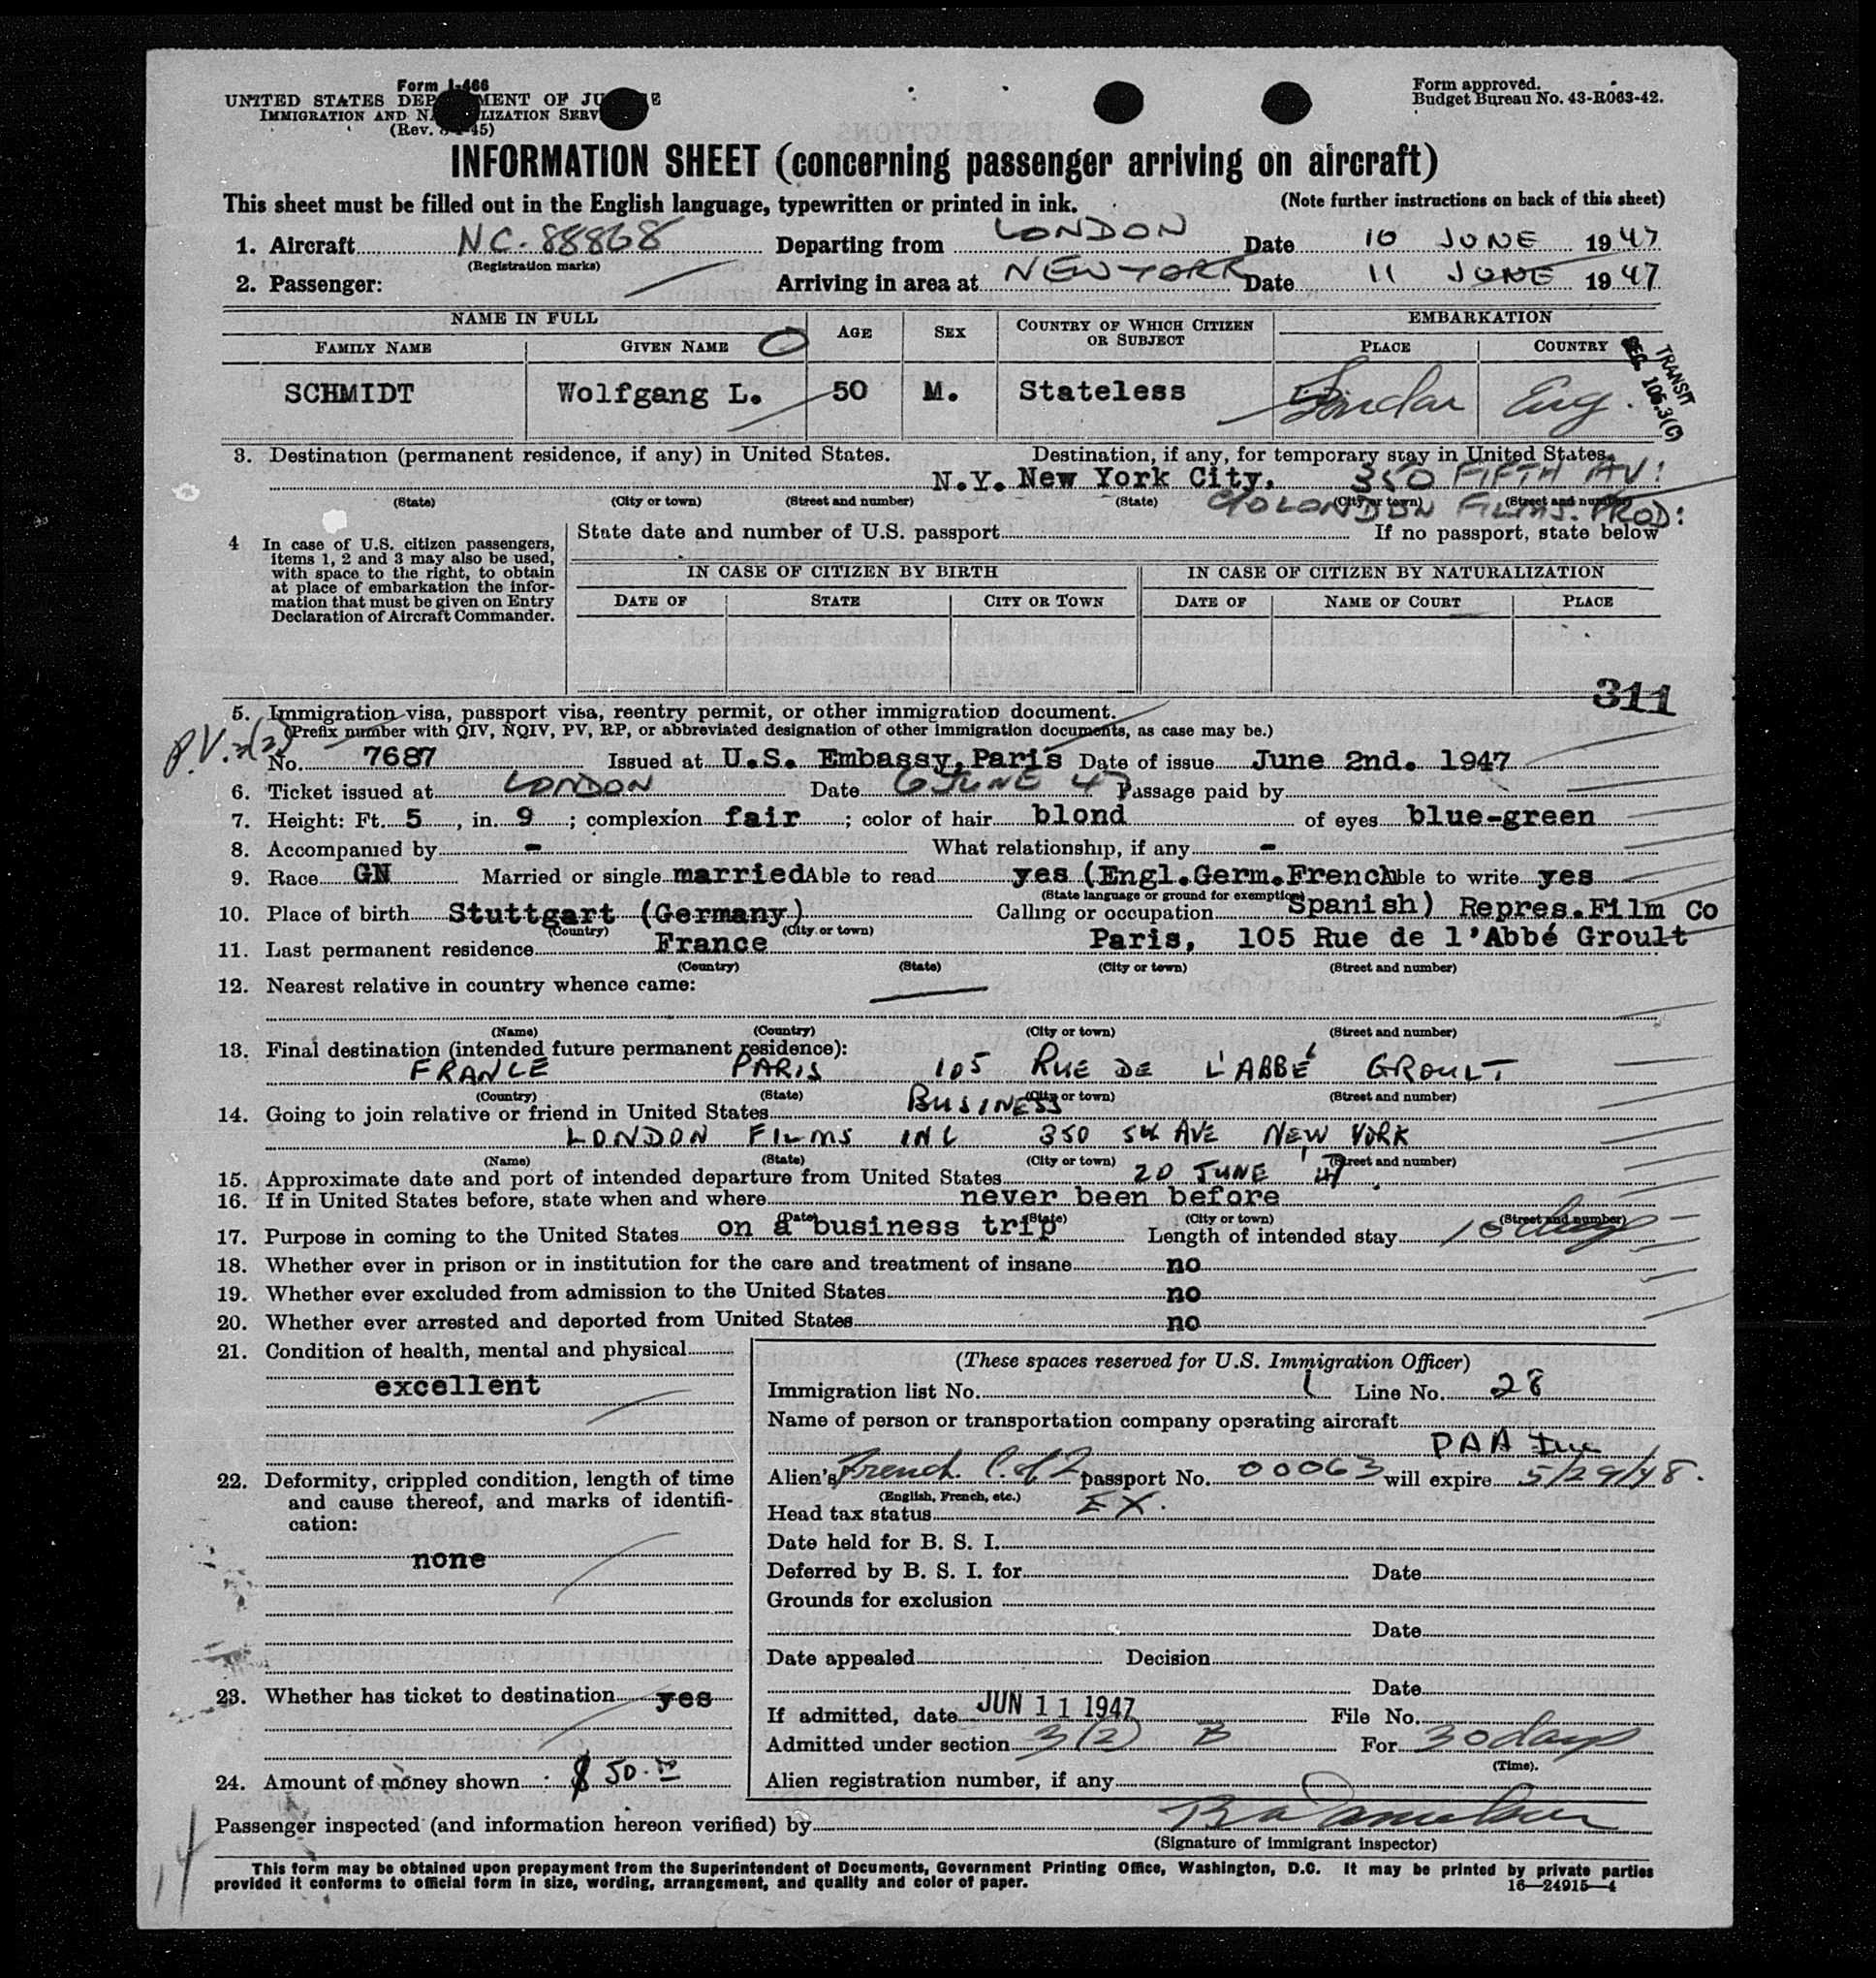 Form I-466
UNITED STATES DEPARTMENT OF JUSTICE
IMMIGRATION AND NATURALIZATION SERVICE
(Rev. 45)
Form approved.
Budget Bureau No. 43-R063-42.
INFORMATION SHEET (concerning passenger arriving on aircraft)
This sheet must be filled out in the English language, typewritten or printed in ink. (Note further instructions on back of this sheet)
1. Aircraft NC. 88868 Departing from LONDON Date 10 JUNE 1947
(Registration marks)
2. Passenger: Arriving in area at NEW YORK Date 11 JUNE 1947
NAME IN FULL AGE SEX COUNTRY OF WHICH CITIZEN OR SUBJECT EMBARKATION
FAMILY NAME GIVEN NAME PLACE COUNTRY
SCHMIDT Wolfgang L. 50 M. Stateless London Eng.
TRANSIT
SEC. 106.3(C)
3. Destination (permanent residence, if any) in United States. Destination, if any, for temporary stay in United States.
N.Y. New York City. 350 FIFTH AV:
(State) (City or town) (Street and number) (State) (City or town) (Street and number)
C/O LONDON FILMS. PROD:
4 In case of U.S. citizen passengers, items 1, 2 and 3 may also be used, with space to the right, to obtain at place of embarkation the information that must be given on Entry Declaration of Aircraft Commander.
State date and number of U.S. passport If no passport, state below
IN CASE OF CITIZEN BY BIRTH IN CASE OF CITIZEN BY NATURALIZATION
DATE OF STATE CITY OR TOWN DATE OF NAME OF COURT PLACE
311
5. Immigration visa, passport visa, reentry permit, or other immigration document.
(Prefix number with QIV, NQIV, PV, RP, or abbreviated designation of other immigration documents, as case may be.)
P.V. 3(2)
No. 7687 Issued at U.S. Embassy, Paris Date of issue June 2nd. 1947
6. Ticket issued at LONDON Date 6 JUNE 47 Passage paid by
7. Height: Ft. 5, in. 9; complexion fair; color of hair blond of eyes blue-green
8. Accompanied by - What relationship, if any -
9. Race GN Married or single married Able to read yes (Engl.Germ.French Able to write yes
(State language or ground for exemption)
10. Place of birth Stuttgart (Germany) Calling or occupation Spanish) Repres.Film Co
(Country) (City or town)
11. Last permanent residence France Paris, 105 Rue de l'Abbé Groult
(Country) (State) (City or town) (Street and number)
12. Nearest relative in country whence came:
(Name) (Country) (City or town) (Street and number)
13. Final destination (intended future permanent residence):
FRANCE PARIS 105 RUE DE L'ABBÉ GROULT
(Country) (State) (City or town) (Street and number)
14. Going to join relative or friend in United States BUSINESS
LONDON FILMS INC 350 5th AVE NEW YORK
(Name) (State) (City or town) (Street and number)
15. Approximate date and port of intended departure from United States 20 JUNE 47
16. If in United States before, state when and where never been before
(Date) (State) (City or town) (Street and number)
17. Purpose in coming to the United States on a business trip Length of intended stay 10 days
18. Whether ever in prison or in institution for the care and treatment of insane no
19. Whether ever excluded from admission to the United States no
20. Whether ever arrested and deported from United States no
21. Condition of health, mental and physical
excellent
22. Deformity, crippled condition, length of time
and cause thereof, and marks of identifi-
cation:
none
23. Whether has ticket to destination yes
24. Amount of money shown $50.00
(These spaces reserved for U.S. Immigration Officer)
Immigration list No. 1 Line No. 28
Name of person or transportation company operating aircraft
PAA Inc
Alien's French passport No. 00063 will expire 5/29/48.
(English, French, etc.)
Head tax status EX.
Date held for B. S. I.
Deferred by B. S. I. for Date
Grounds for exclusion
Date
Date appealed Decision
Date
If admitted, date JUN 11 1947 File No.
Admitted under section 3(2) B For 30 days
(Time).
Alien registration number, if any
Passenger inspected (and information hereon verified) by
(Signature of immigrant inspector)
14
This form may be obtained upon prepayment from the Superintendent of Documents, Government Printing Office, Washington, D.C. It may be printed by private parties
provided it conforms to official form in size, wording, arrangement, and quality and color of paper. 16—24915—4